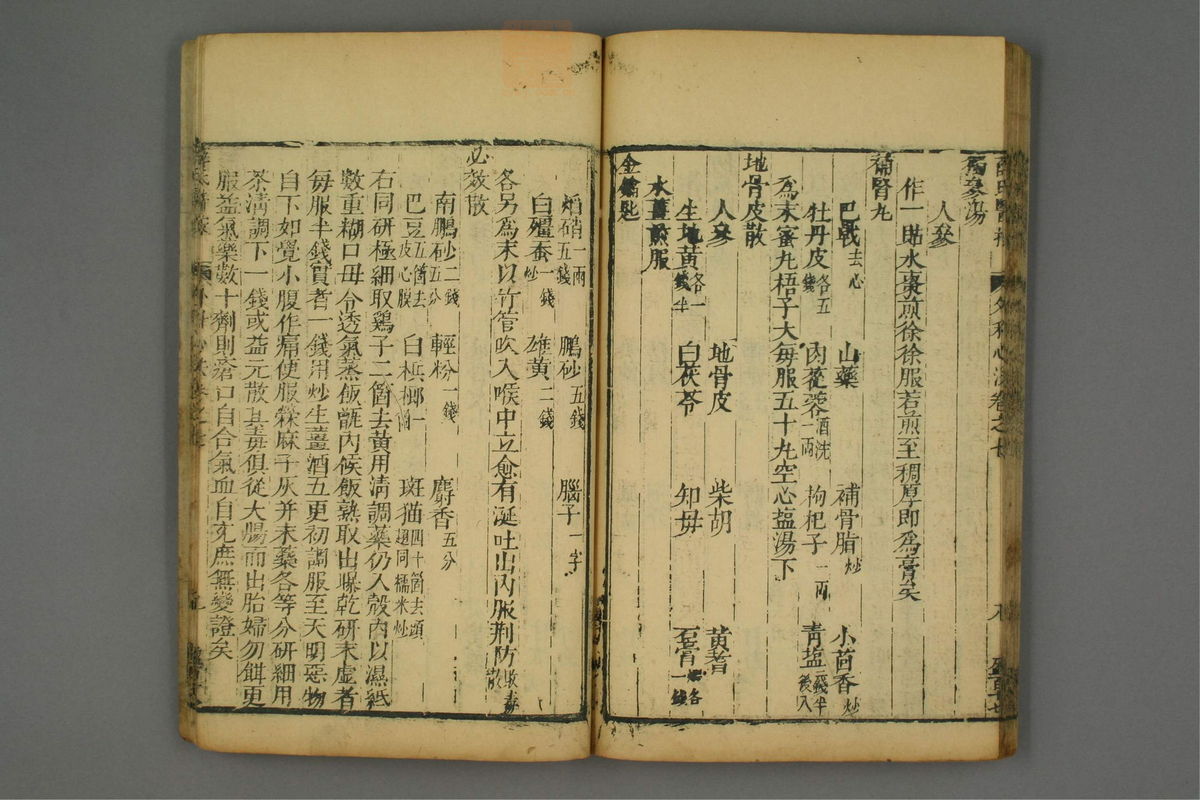 薛氏醫按 外科心法卷之七
獨參湯
人參
作一服水棗煎徐徐服若煎至稠厚即為膏矣
補腎丸
巴戟去心 山藥 補骨脂炒 小茴香炒
牡丹皮各五錢 肉蓯蓉酒洗一兩 枸杞子一兩 青塩二錢半後入
為末蜜丸梧子大每服五十丸空心塩湯下
地骨皮散
人參 地骨皮 柴胡 黃耆
生地黃各一錢半 白茯苓 知母 石膏煅各一錢
水薑煎服
金鑰匙
焰硝一兩五錢 鵬砂五錢 腦子一字
白殭蚕一錢炒 雄黃二錢
各另為末以竹管吹入喉中立愈有涎吐出內服荊防敗毒散
必效散
南鵬砂二錢五分 輕粉一錢 麝香五分
巴豆五箇去皮心膜 白檳榔一箇 斑猫四十箇去頭翅同糯米炒
右同研極細取鷄子二箇去黃用清調藥仍入殼內以濕紙
數重糊口毋令透氣蒸飯甑內候飯熟取出曝乾研末虛者
每服半錢實者一錢用炒生薑酒五更初調服至天明惡物
自下如覺小腹作痛便服蔴子灰并末藥各等分研細用
茶清調下一錢或益元散其毒俱從大腸而出胎婦勿餌更
服益氣藥數十劑則瘡口自合氣血自充庶無變證矣